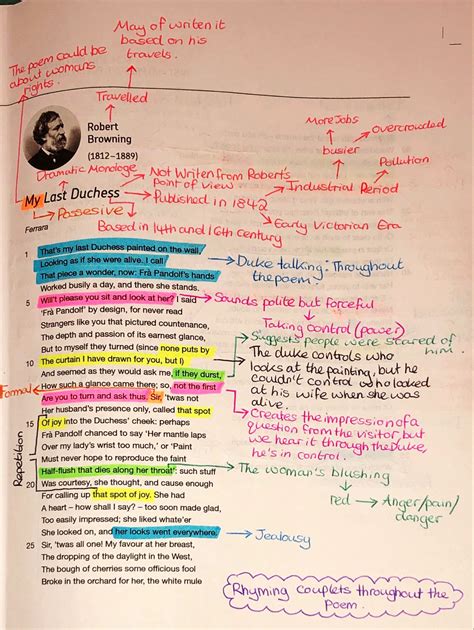 May of writen it
based on his
travels.
The poem could be
about womans
rights.
Travelled
More Jobs
overcrowded
busier
Pollution
Robert
Browning
(1812–1889)
Dramatic Monologe
Not Writen from Robert's
Point of view
Industrial Period
My Last Duchess
Published in 1842
Possesive
Early Victorian Era
Ferrara
Based in 14th and 16th century
1 That's my last Duchess painted on the wall,
Looking as if she were alive. I call
That piece a wonder, now: Frà Pandolf's hands
Worked busily a day, and there she stands.
Duke talking: Throughout
the poem
5 Will't please you sit and look at her? I said
'Frà Pandolf' by design, for never read
Strangers like you that pictured countenance,
The depth and passion of its earnest glance,
But to myself they turned (since none puts by
10 The curtain I have drawn for you, but I)
And seemed as they would ask me, if they durst,
How such a glance came there; so, not the first
Are you to turn and ask thus. Sir, 'twas not
Her husband's presence only, called that spot
15 Of joy into the Duchess' cheek: perhaps
Frà Pandolf chanced to say 'Her mantle laps
Over my lady's wrist too much,' or 'Paint
Must never hope to reproduce the faint
Half-flush that dies along her throat': such stuff
20 Was courtesy, she thought, and cause enough
For calling up that spot of joy. She had
A heart – how shall I say? – too soon made glad,
Too easily impressed; she liked whate'er
She looked on, and her looks went everywhere.
25 Sir, 'twas all one! My favour at her breast,
The dropping of the daylight in the West,
The bough of cherries some officious fool
Broke in the orchard for her, the white mule
Sounds polite but forceful
Taking control (power)
Suggests people were scared of
him.
The duke controls who
looks at the painting, but he
couldn't control who looked
at his wife when she was
alive.
Formal
Creates the impression of a
question from the visitor but
we hear it through the Duke,
he's in control.
Repetition
The woman's blushing
red
Anger/pain/
danger
Jealousy
Rhyming couplets throughout the
Poem.